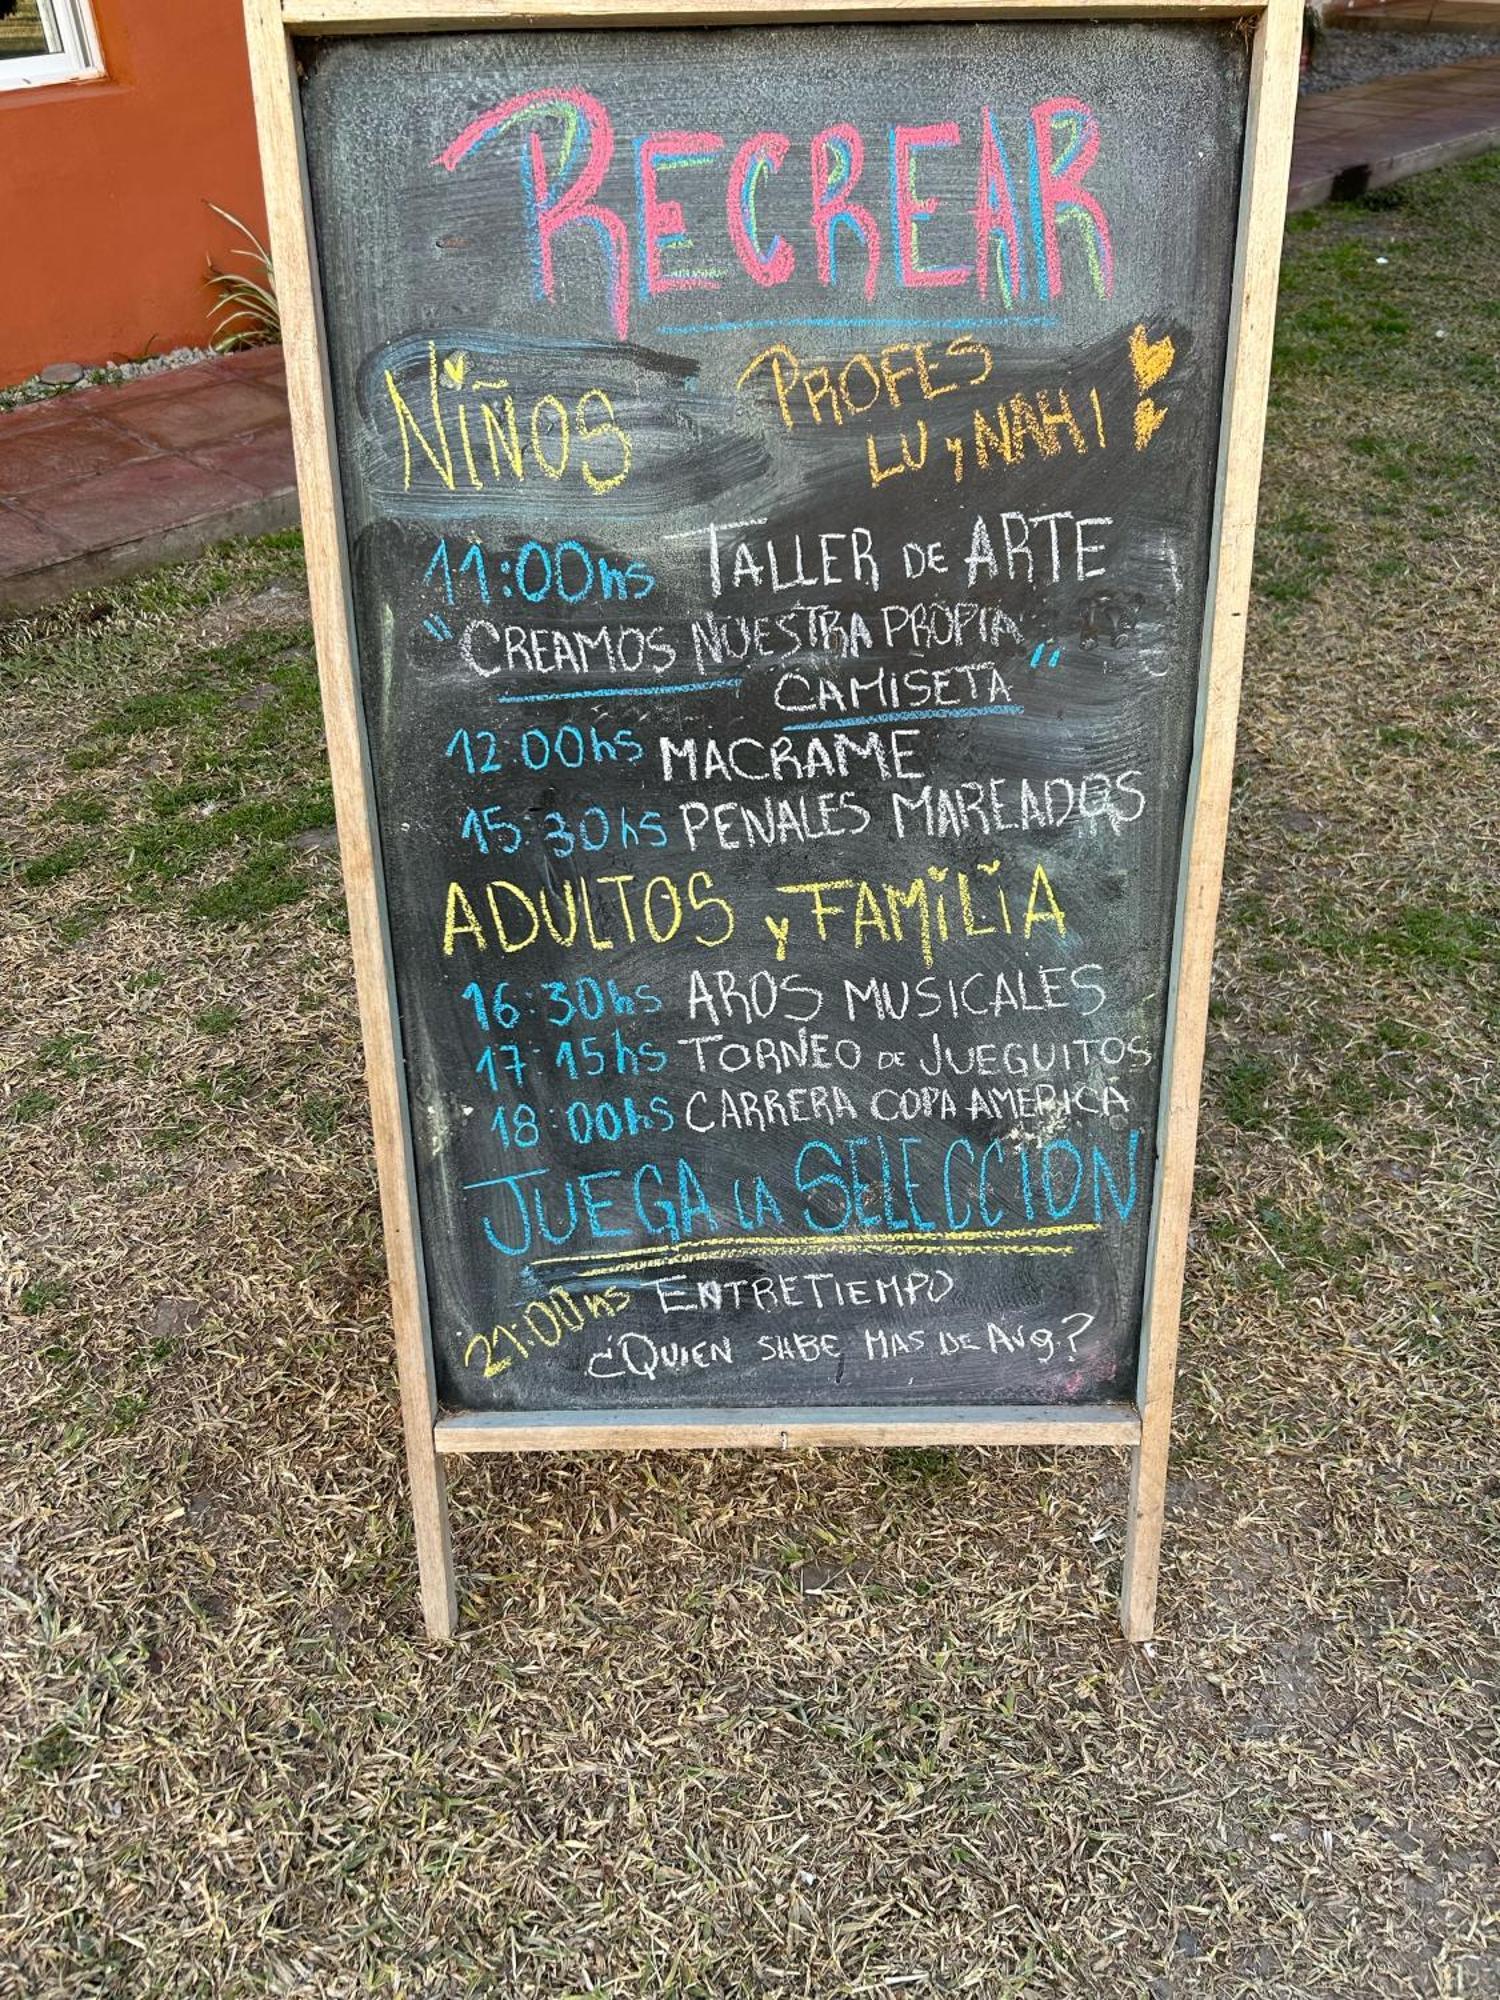 RECREAR
NIÑOS
PROFES
LU y NAHI
11:00hs TALLER DE ARTE
"CREAMOS NUESTRA PROPIA
CAMISETA"
12:00hs MACRAME
15:30hs PENALES MAREADOS
ADULTOS y FAMILIA
16:30hs AROS MUSICALES
17:15hs TORNEO DE JUEGUITOS
18:00hs CARRERA COPA AMERICA
JUEGA LA SELECCION
21:00hs ENTRETIEMPO
¿QUIEN SABE MAS DE Arg.?